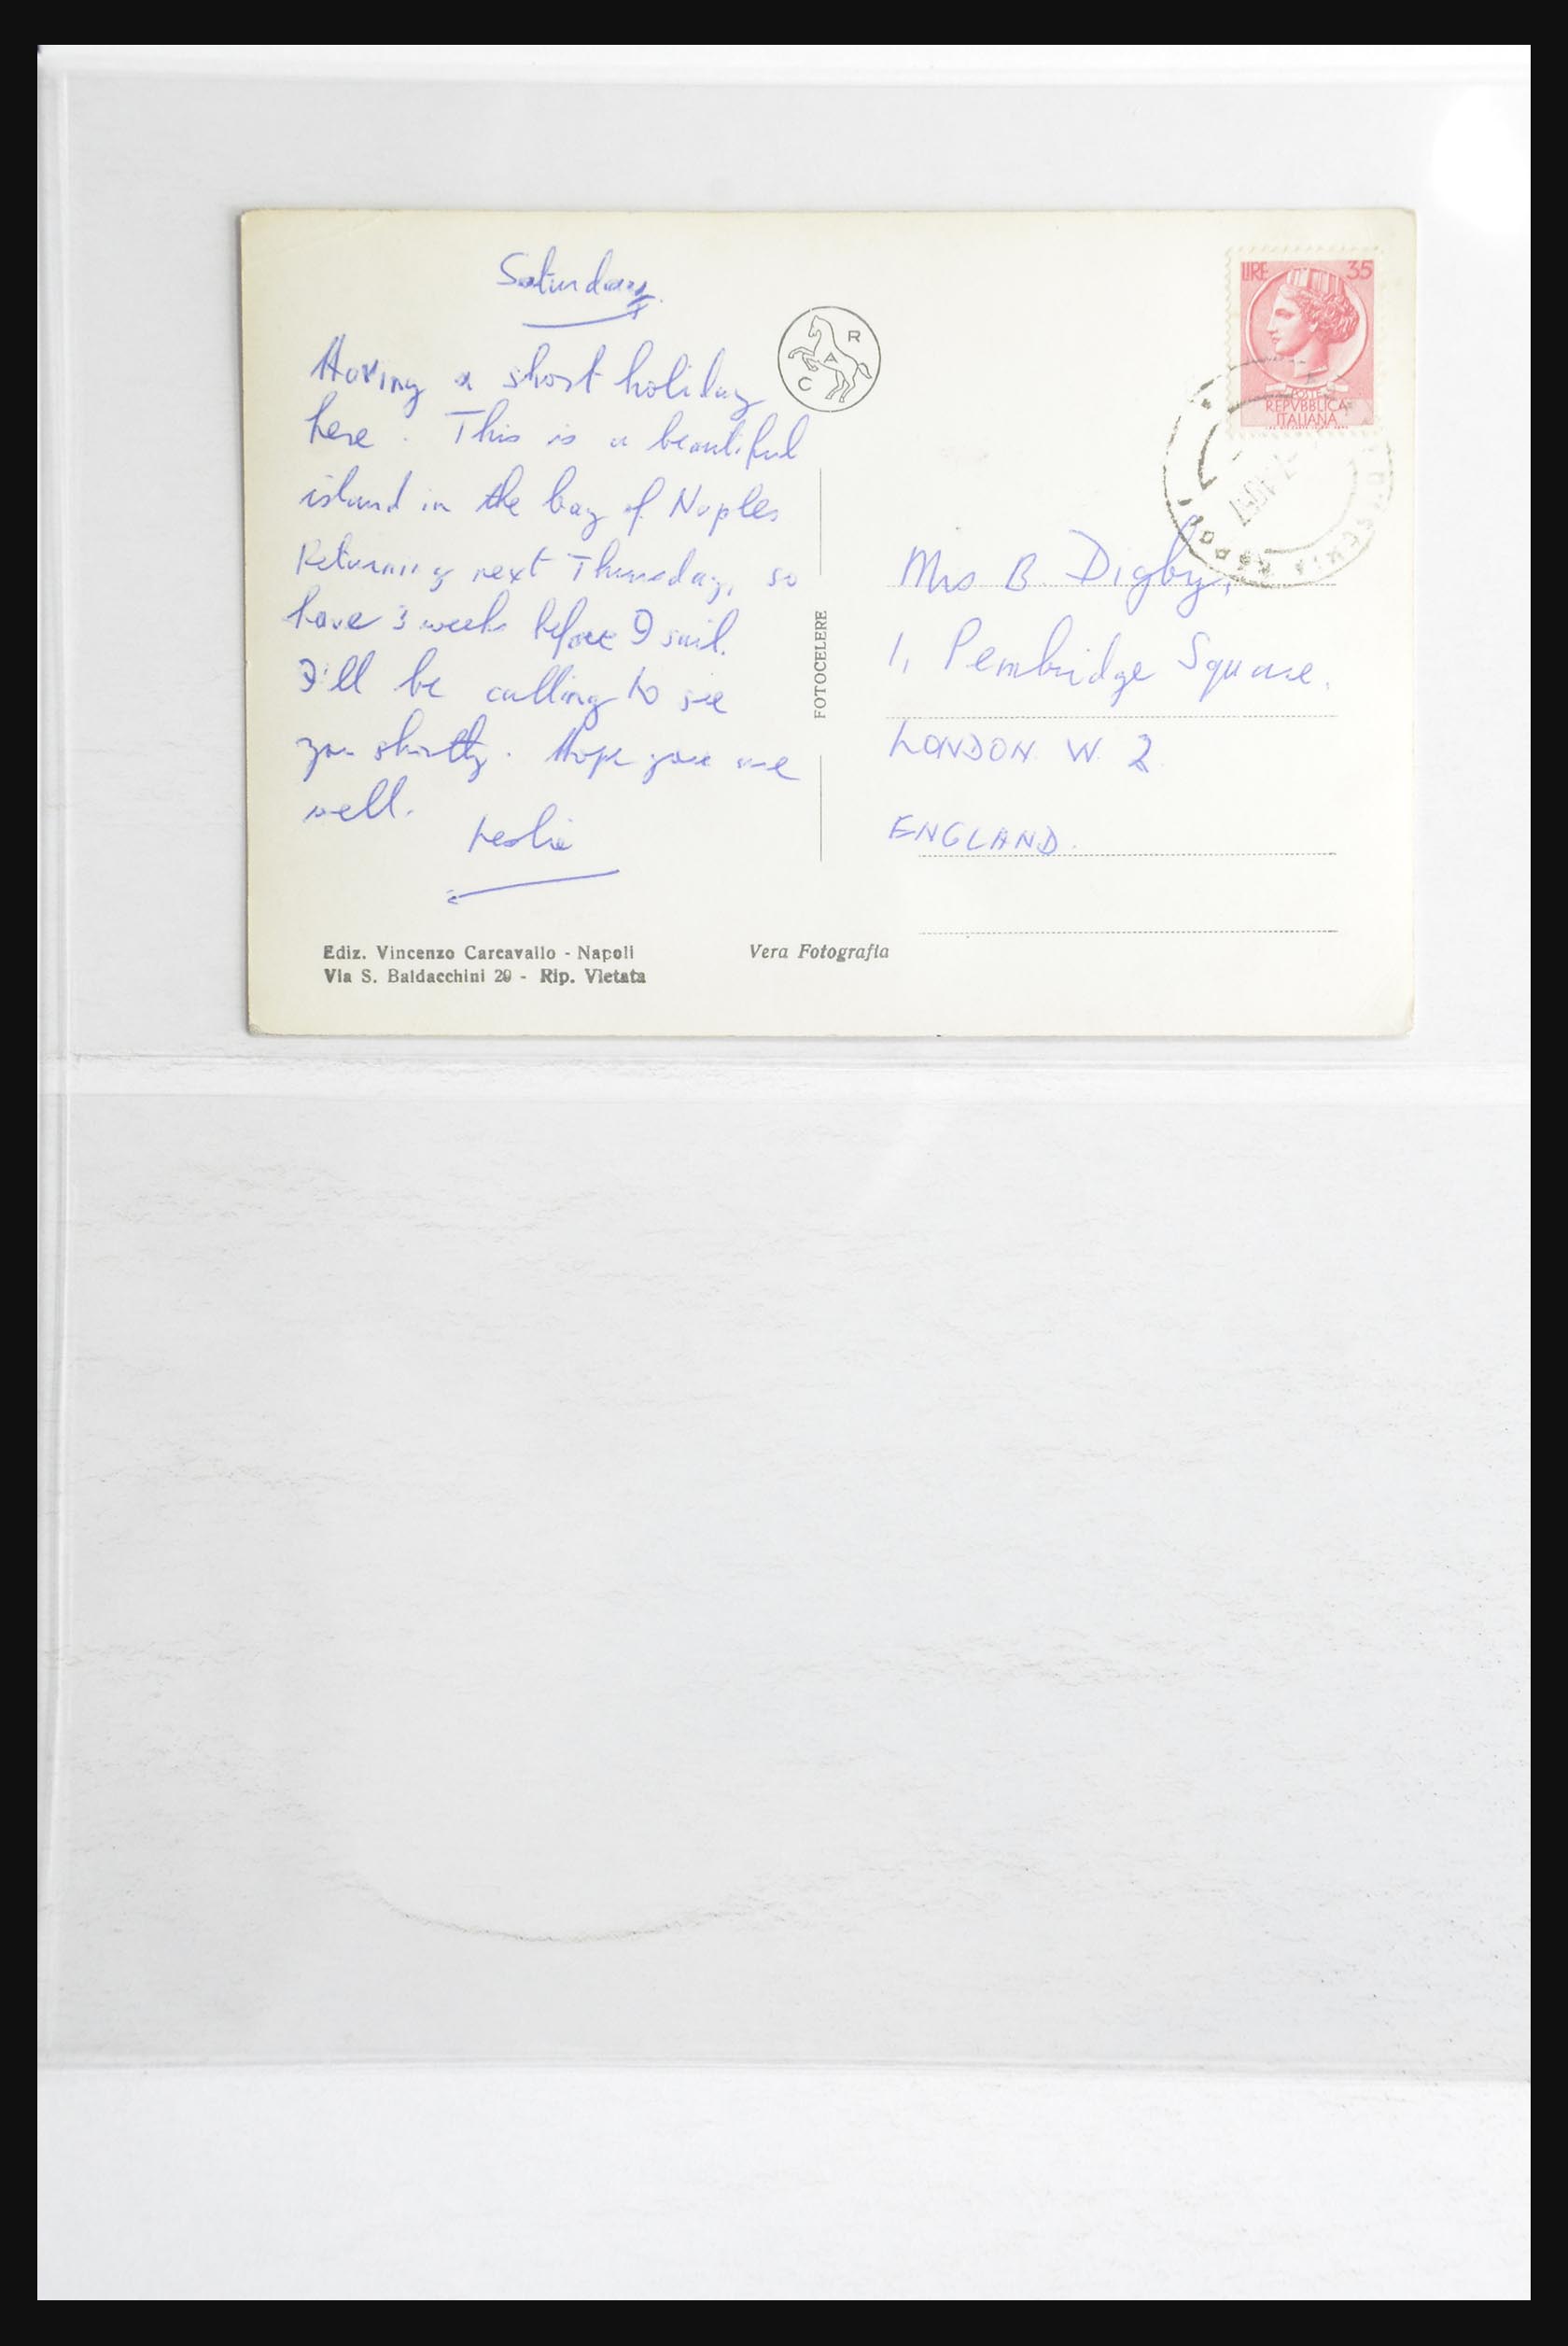 Saturday.
Having a short holiday
here. This is a beautiful
island in the bay of Naples
Returning next Thursday, so
have 3 weeks before I sail.
I'll be calling to see
you shortly. Hope you are
well.
Leslie
Ediz. Vincenzo Carcavallo - Napoli
Via S. Baldacchini 29 - Rip. Vietata
R
A
C
FOTOCELERE
Vera Fotografia
LIRE 35
POSTE
REPVBBLICA
ITALIANA
Mrs B. Digby,
1, Pembridge Square.
LONDON W. 2.
ENGLAND.